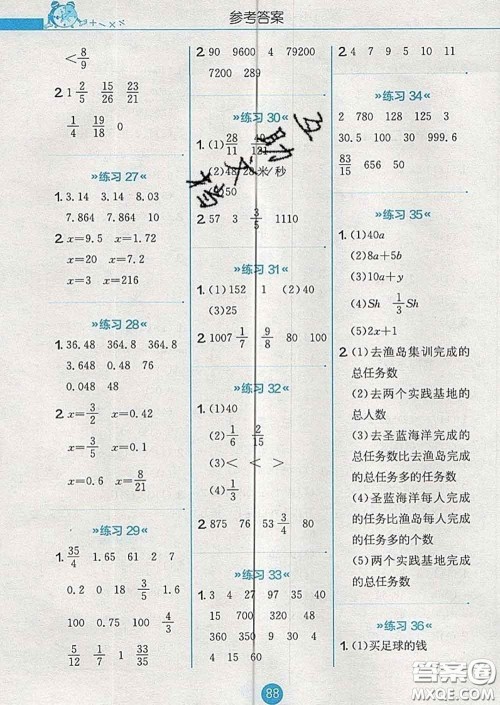 参考答案
<8/9
2. 1 2/5 15/26 23/21
1/4 19/18 0
»练习 27«
1. 3.14 3.14 8.03
7.864 7.864 10
2. x=9.5 x=1.72
x=20 x=7.2
x=3 x=216
»练习 28«
1. 36.48 364.8 364.8
3.648 364.8 0.48
36 4.8
2. x=3/2 x=0.4
x=3/5 x=0.1
x=0.6 x=8/21
»练习 29«
1. 35/4 1.65 61 2 7
0.2 0.49 18 3/5 1.6
100 0.75 100 4/3
5/12 1/7 1 3/5 31
2. 90 9600 4 79200
7200 289
»练习 30«
1. (1)28/11
(2)48 28米/秒
50
2. 57 3 3/5 1110
»练习 31«
1. (1)152 1 (2)40
(3)25
2. 1007 1/7 9/8 80 100
»练习 32«
1. (1)40
(2)1/6 2/15
(3)< < >
(4)1/3
2. 875 76 53 3/4 80
»练习 33«
1. 3 4 27 97 35 40
15 700 320 48
350 88 90 14
4 15 60
2. 4 7 9 5 10 11
»练习 34«
2 780 128 3
30.5 100 30 999.6
83/15 656 50
»练习 35«
1. (1)40a
(2)8a+5b
(3)10a+y
(4)Sh 1/3Sh
(5)2x+1
2. (1)去渔岛集训完成的
总任务数
(2)去两个实践基地的
总人数
(3)去圣蓝海洋完成的
总任务数比去渔岛完成
的总任务多的任务数
(4)圣蓝海洋每人完成
的任务比渔岛每人完成
的任务多的个数
(5)两个实践基地完成
总任务数
»练习 36«
1. (1)买足球的钱
88
答案圈
MXQE.COM